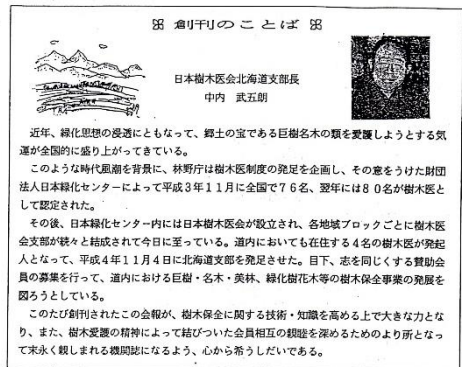 創刊のことば
日本樹木医会北海道支部長
中内 武五朗
近年、緑化思想の浸透にともなって、郷土の宝である巨樹名木の類を愛護しようとする気
運が全国的に盛り上がってきている。
このような時代風潮を背景に、林野庁は樹木医制度の発足を企画し、その意をうけた財団
法人日本緑化センターによって平成3年11月に全国で76名、翌年には80名が樹木医と
して認定された。
その後、日本緑化センター内には日本樹木医会が設立され、各地域ブロックごとに樹木医
会支部が続々と結成されて今日に至っている。道内においても在住する4名の樹木医が発起
人となって、平成4年11月4日に北海道支部を発足させた。目下、志を同じくする賛助会
員の募集を行って、道内における巨樹・名木・美林、緑化樹花木等の樹木保全事業の発展を
図ろうとしている。
このたび創刊されたこの会報が、樹木保全に関する技術・知識を高める上で大きな力とな
り、また、樹木愛護の精神によって結びついた会員相互の親睦を深めるためのより所となっ
て末永く親しまれる機関誌になるよう、心から希うしだいである。